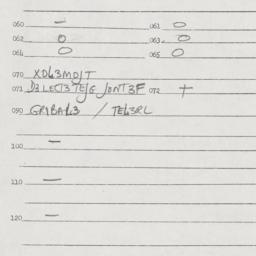 060 — 061 O
062 O 063. O
064 O 065 O
070 XDL3MDJT
071 D2LECT3TEJG JONT3F 072 +
090 GRYBAL3 / TEL3RL
100 —
110 —
120 —